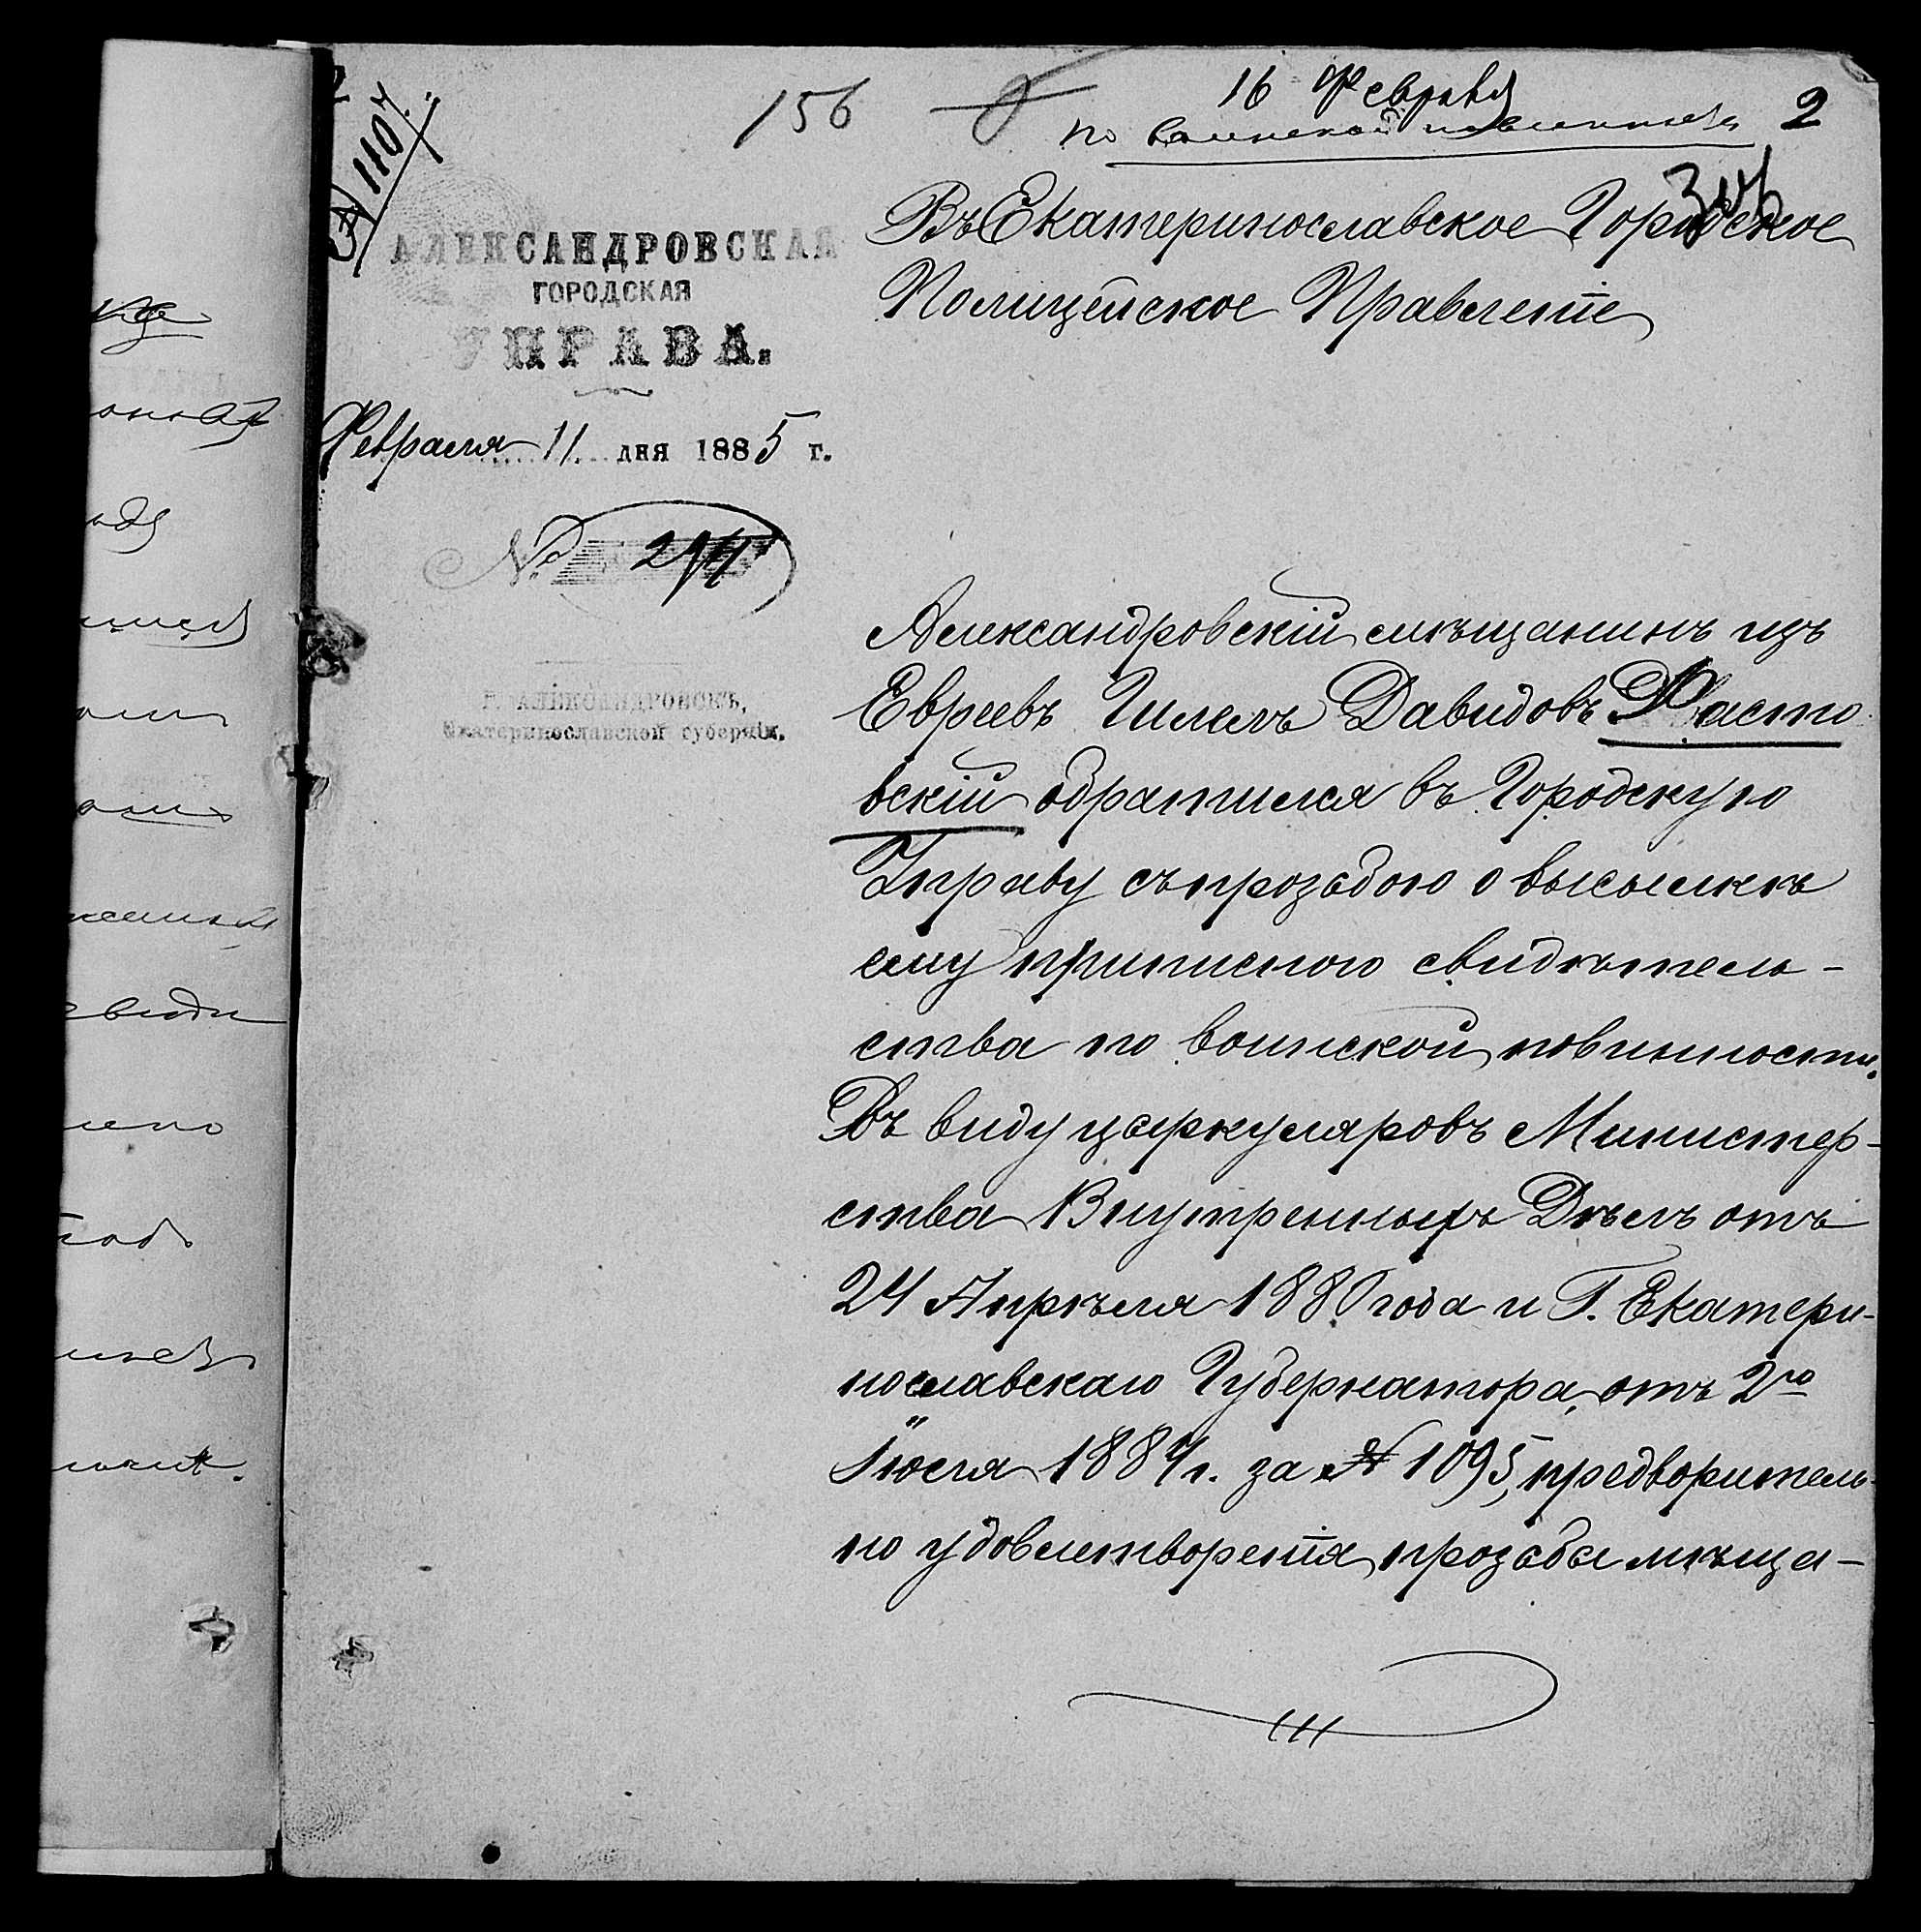 156
16 Февраля
по воинской повинности
2
306
№ 1107
АЛЕКСАНДРОВСКАЯ
ГОРОДСКАЯ
УПРАВА.
Февраля 11 дня 1885 г.
№
Г. АЛЕКСАНДРОВСКЪ,
Екатеринославской губерніи.
Въ Екатеринославское Городское
Полицейское Правленіе
Александровскій мѣщанинъ изъ
Евреевъ Гилель Давидовъ Хасто
вскій обратился въ Городскую
Управу съ прозьбою о высылкѣ
ему приписного свидѣтель-
ства по воинской повинности.
Въ виду циркуляровъ Министер-
ства Внутренныхъ Дѣлъ отъ
24 Апрѣля 1880 года и Г. Екатери-
нославскаго Губернатора, отъ 2го
Іюля 1884 г. за № 1095, предворитель-
но удовлетворенія прозьбы мѣща-